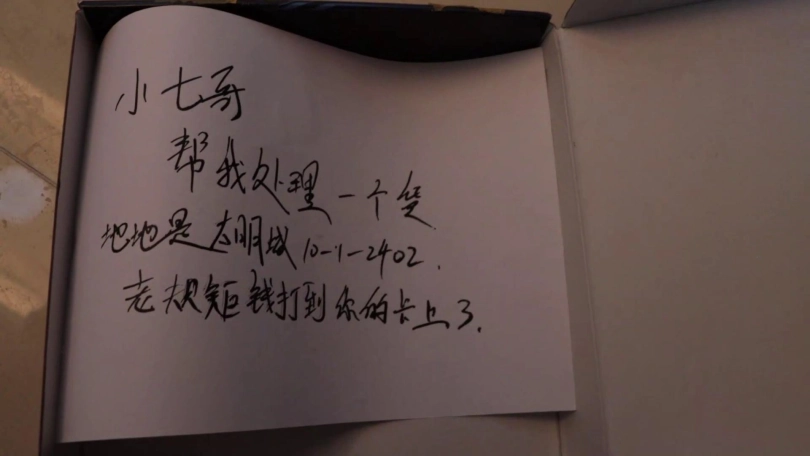 小七哥
帮我处理一个
地地是大明城10-1-2402.
老规矩钱打到你的卡上了.